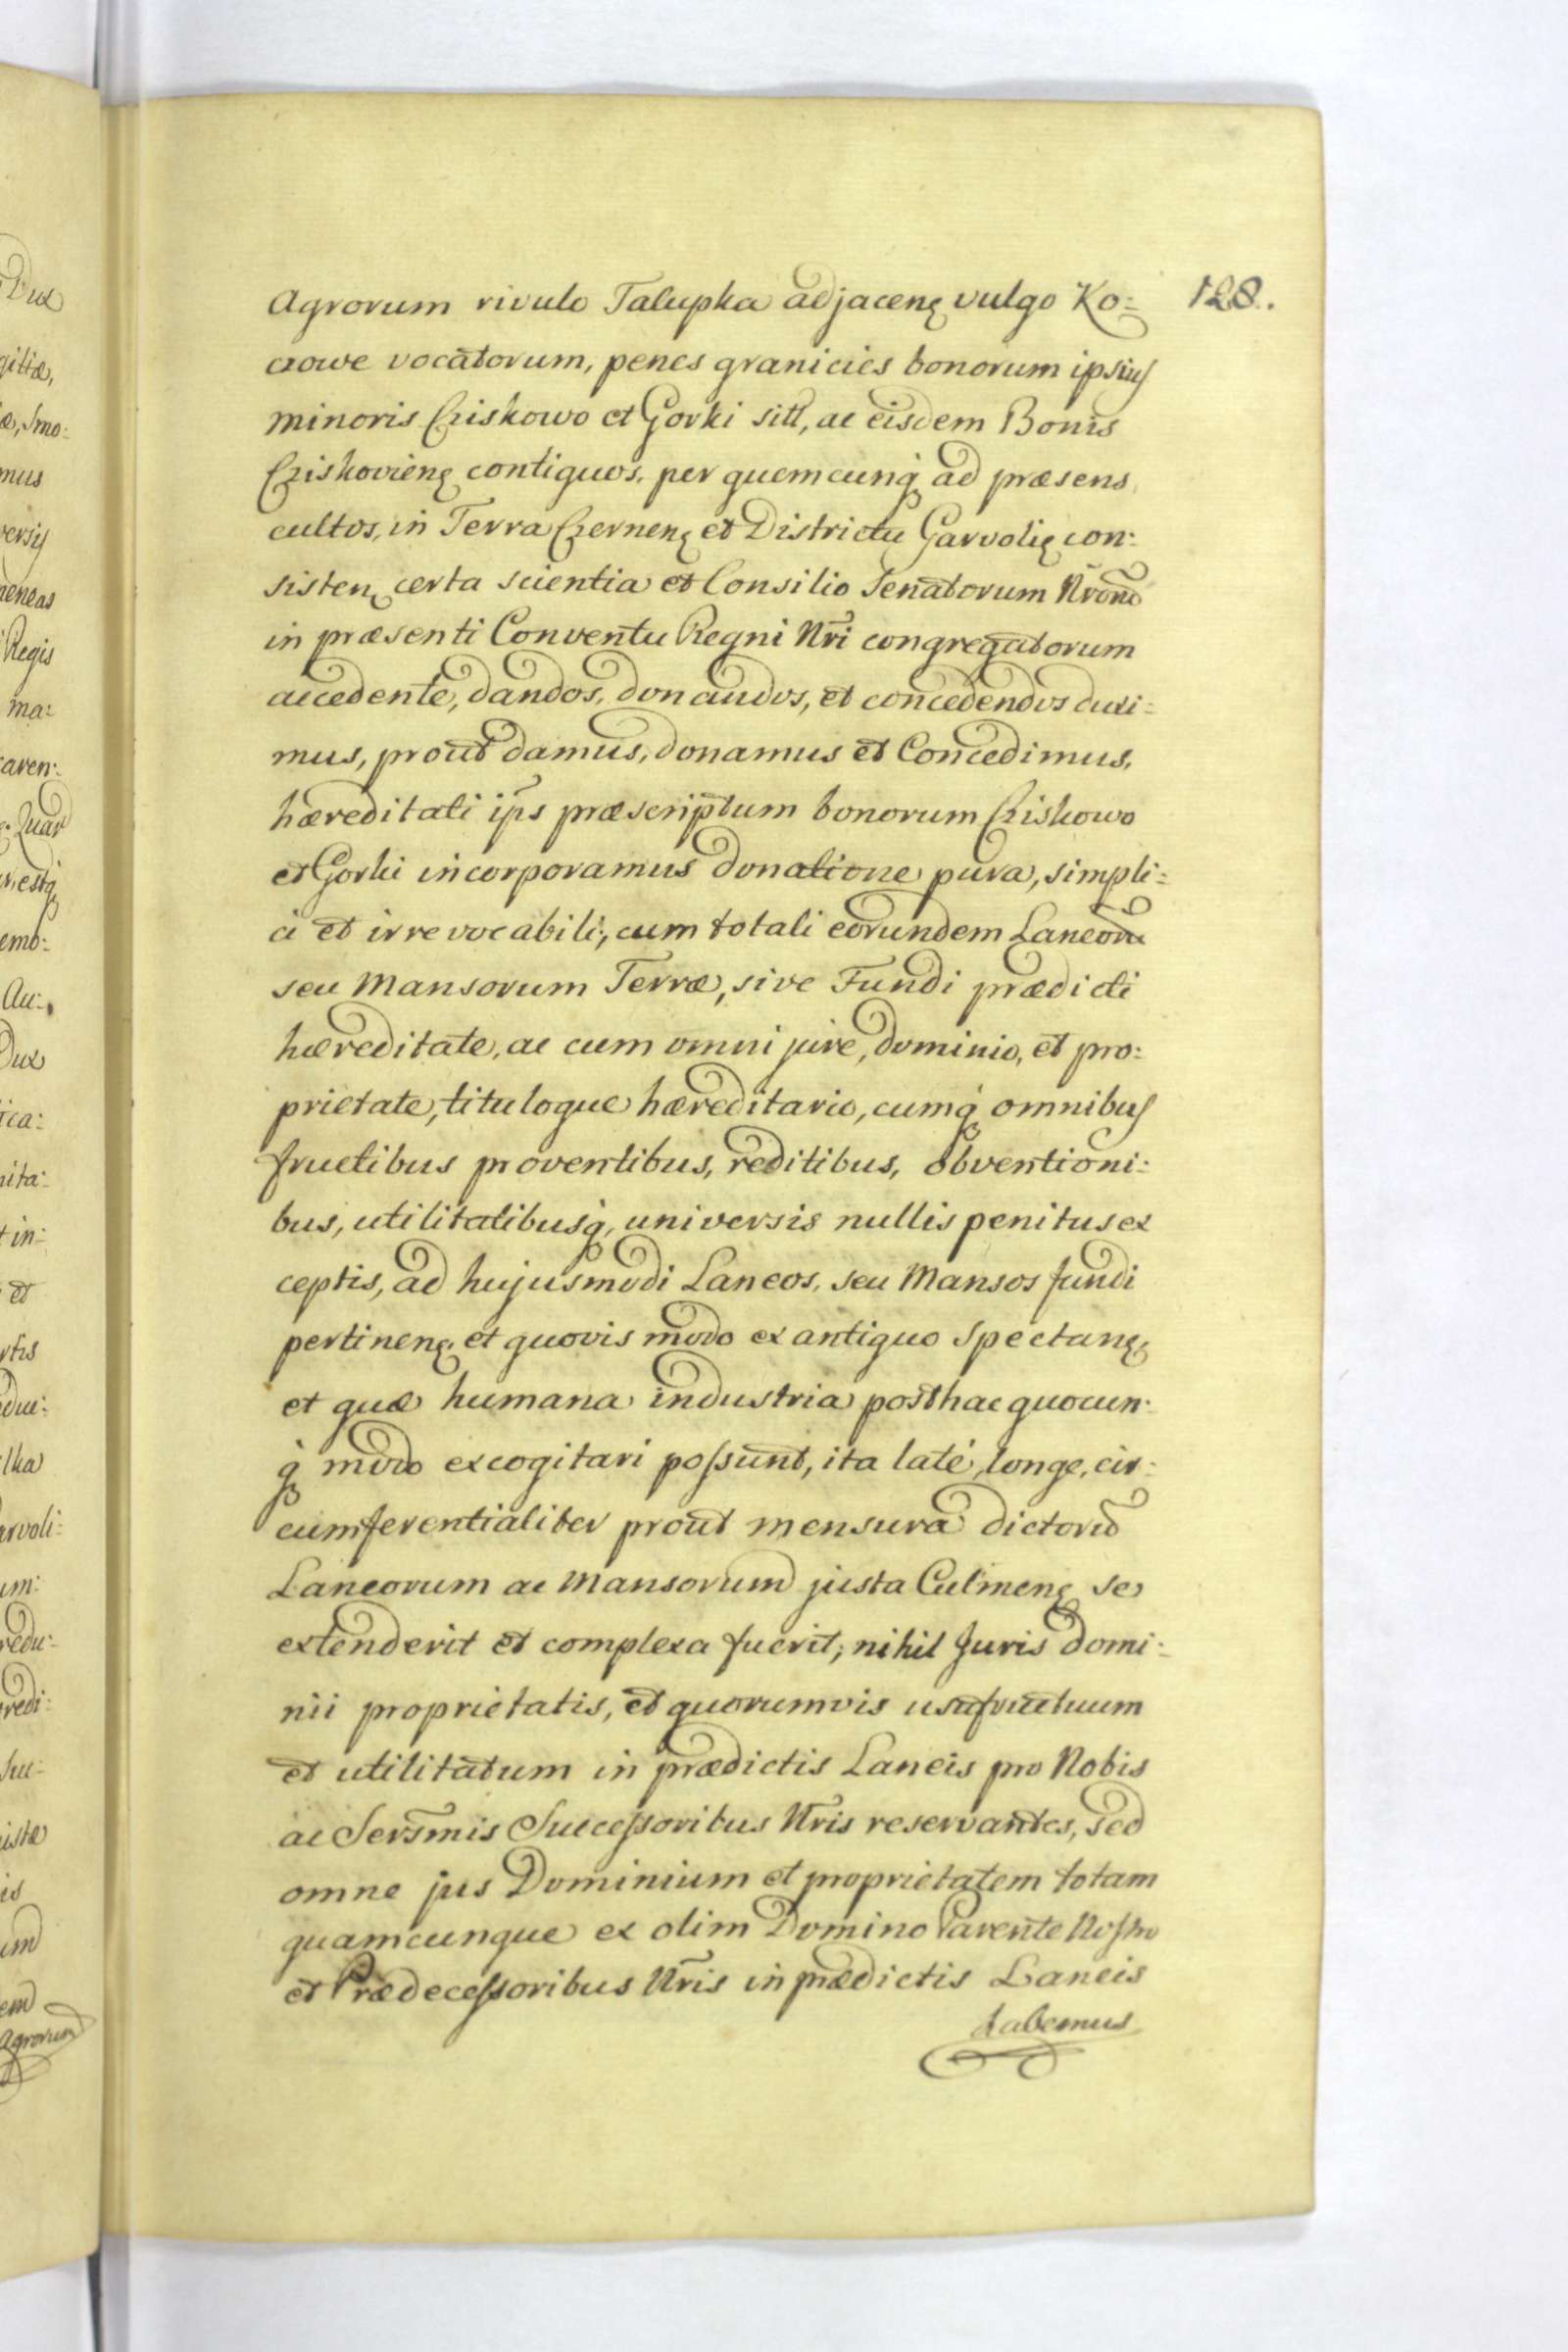 128.
Agrorum rivulo Talupka adjacenę vulgo Ko:
czowe vocatorum, penes granicies bonorum ipsius
minoris Cziskowo et Gorki sitt, ac eisdem Bonis
Cziskovienę contiguos, per quemcunq́ ad præsens
cultos, in Terra Czernenę et Districtu Garvolię con:
sistenę certa scientia et Consilio Senatorum Nr̃orũ
in præsenti Conventu Regni Nr̃i congregatorum
accedente, dandos, donandos, et concedendos duxi:
mus, prout damus, donamus et Concedimus,
hæreditati ip̃s præscriptum bonorum Cziskowo
et Gorki incorporamus donatione pura, simpli:
ci et irrevocabili, cum totali eorundem Laneorũ
seu Mansorum Terræ, sive Fundi prædicti
hæreditate, ac cum omni jure, dominio, et pro:
prietate, tituloque hæreditario, cumq́ omnibus
fructibus proventibus, reditibus, obventioni:
bus, utilitatibusq́, universis nullis penitus ex
ceptis, ad hujusmodi Laneos, seu Mansos fundi
pertinenę et quovis modo ex antiquo spectanę,
et quæ humana industria posthac quocun:
q́ modo excogitari possunt, ita laté, longe, cir:
cumferentialiter prout mensura dictorũ
Laneorum ac Mansorum justa Culmenę se
extenderit et complexa fuerit; nihil Juris Domi:
nii proprietatis, et quorumvis usufructuum
et utilitatum in prædictis Laneis pro Nobis
ac Sers̃mis Successoribus Nr̃is reservantes, sed
omne jus Dominium et proprietatem totam
quamcunque ex olim Domino Parente Nostro
et Prædecessoribus Nr̃is in prædictis Laneis
habemus